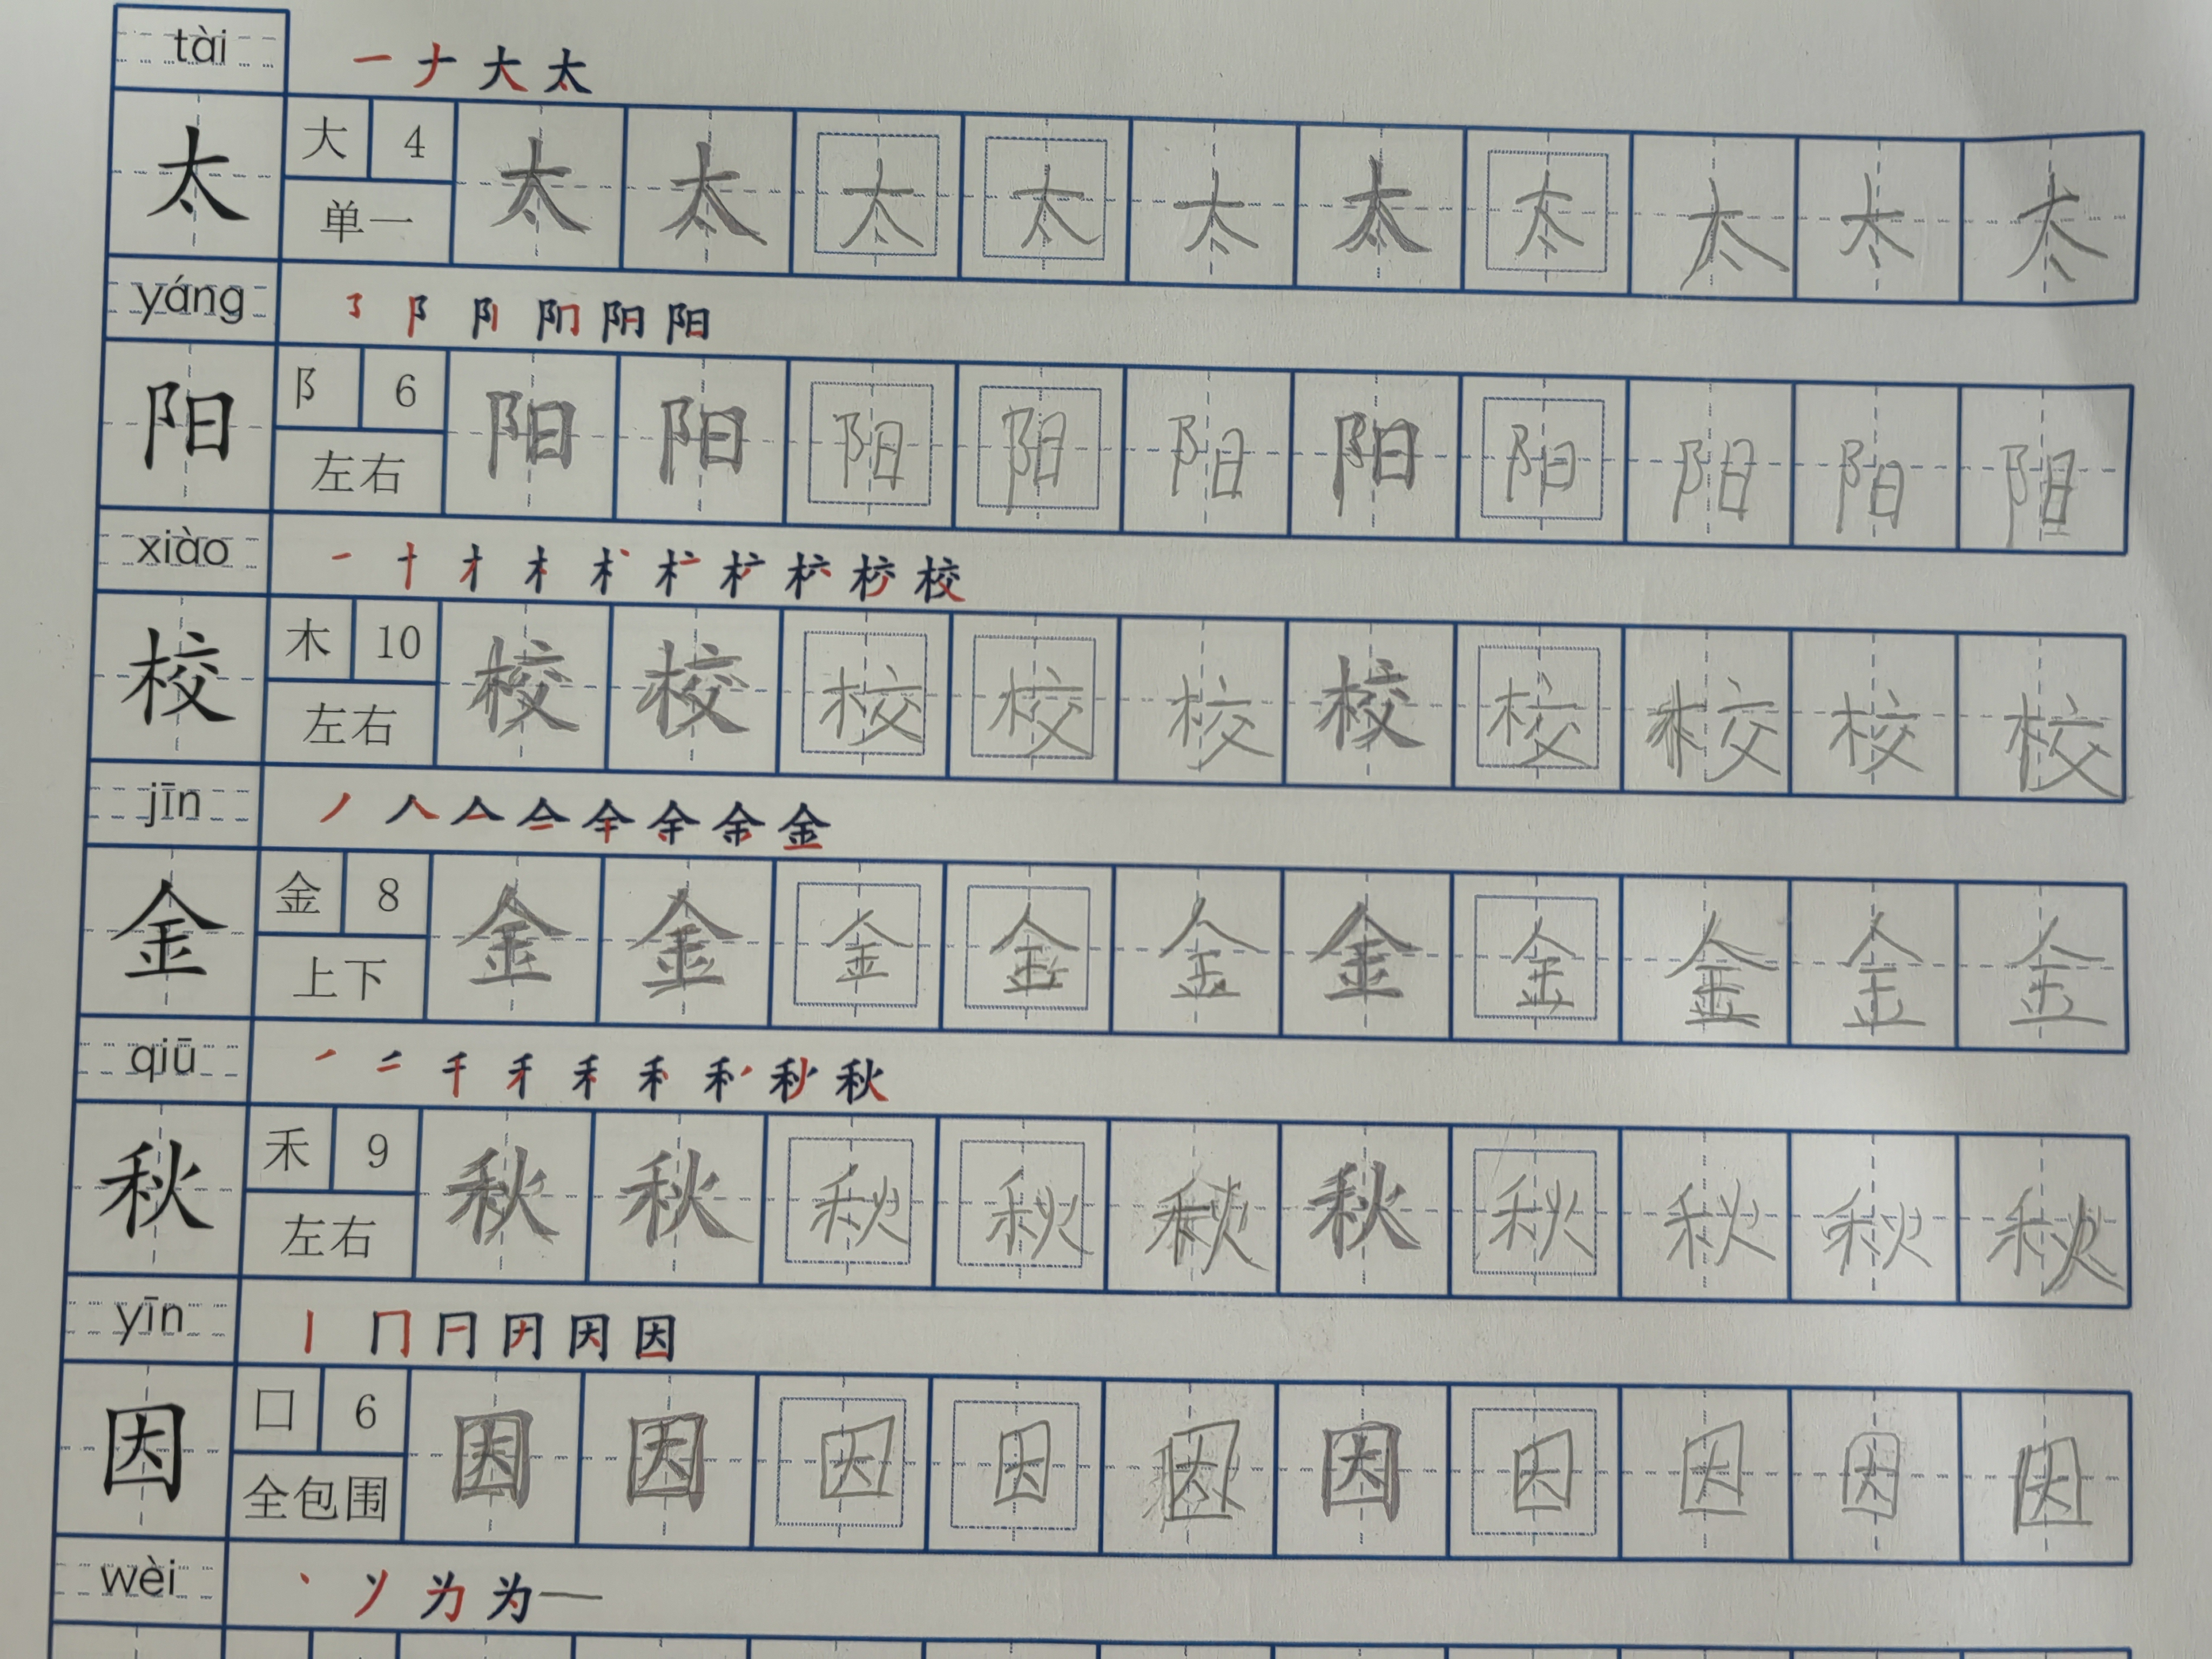 tài
一 ナ 大 太
太 大 4 单一 太 太 太 太 太 太 太 太 太 太
yáng
阳
阳 阝 6 左右 阳 阳 阳 阳 阳 阳 阳 阳 阳 阳
xiào
一 十 才 木 校
校 木 10 左右 校 校 校 校 校 校 校 校 校 校
jīn
丿 人 亼 金
金 金 8 上下 金 金 金 金 金 金 金 金 金 金
qiū
千 禾 秋
秋 禾 9 左右 秋 秋 秋 秋 秋 秋 秋 秋 秋 秋
yīn
丨 冂 因
因 囗 6 全包围 因 因 因 因 因 因 因 因 因 因
wèi
丶 为 为